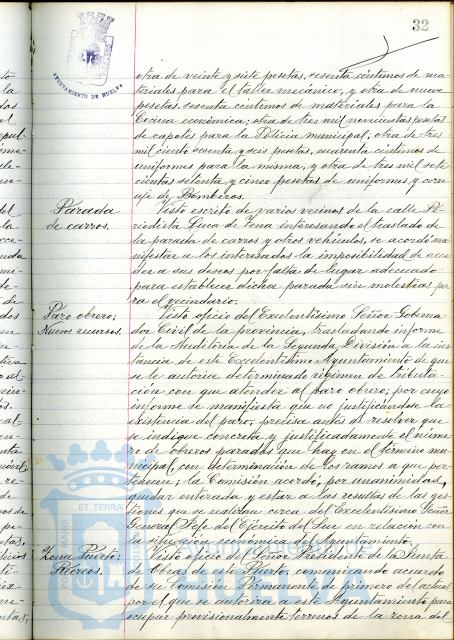 32
AYUNTAMIENTO DE HUELVA
otra de veinte y siete pesetas, sesenta céntimos de ma-
teriales para el taller mecánico, y otra de nueve
pesetas, sesenta céntimos de materiales para la
Cocina económica; otra de tres mil novecientas pesetas
de capotes para la Policía municipal, otra de tres
mil ciento sesenta y seis pesetas, cuarenta céntimos de
uniformes para la misma, y otra de tres mil sete
cientas setenta y cinco pesetas de uniformes y corre
aje de Bomberos.
Parada
de carros.
Visto escrito de varios vecinos de la calle Pe-
riodista Luca de Tena interesando el traslado de
la parada de carros y otros vehículos, se acordó ma-
nifestar a los interesados la imposibilidad de acce
der a sus deseos por falta de lugar adecuado
para establecer dicha parada sin molestias pa
ra el vecindario.
Paro obrero;
Nuevos recursos.
Visto oficio del Excelentísimo Señor Goberna-
dor Civil de la provincia, trasladando informe
de la Auditoría de la Segunda División a la ins-
tancia de este Excelentísimo Ayuntamiento de que
se le autorice determinado régimen de tributa-
ción con que atender al paro obrero; por cuyo
informe se manifiesta que no justificándose la
existencia del paro, precisa antes de resolver que
se indique concreta y justificadamente el núme
ro de obreros parados que hay en el término mu-
nicipal, con determinación de los ramos a que per-
tenecen; la Comisión acordó, por unanimidad,
quedar enterada y estar a las resultas de las ges-
tiones que se realizan cerca del Excelentísimo Señor
General Jefe del Ejército del Sur en relación con
la situación económica del Ayuntamiento.
Zona Puerto:
Recreos.
Visto oficio del Señor Presidente de la Junta
de Obras de este Puerto, comunicando acuerdo
de su Comisión Permanente de primero del actual
por el que se autoriza a este Ayuntamiento para
ocupar provisionalmente terrenos de la zona del